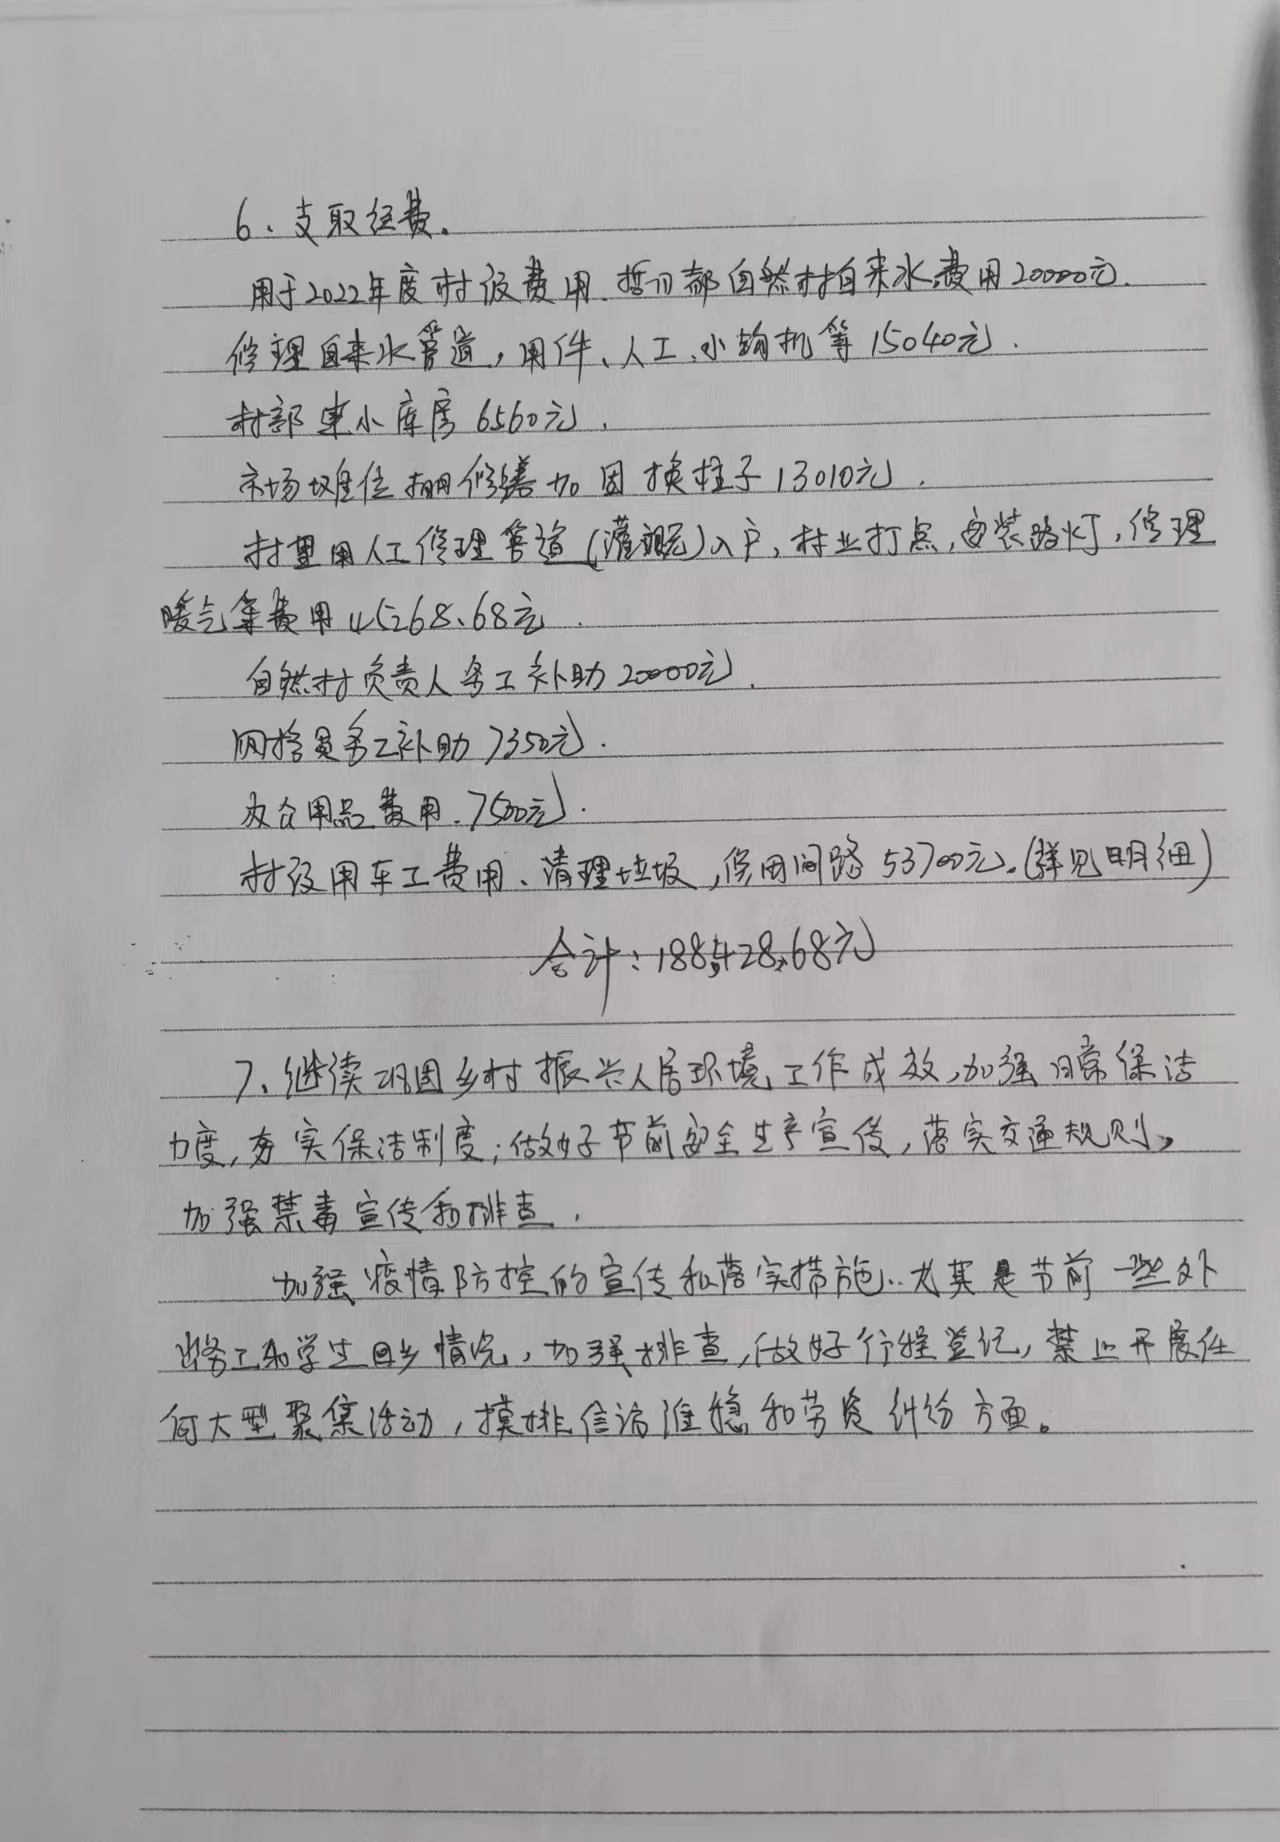 6、支取经费。
用于2022年度村级费用、哲川都自然村自来水费用20000元.
修理自来水管道，用件、人工、小钩机等15040元.
村部 小库房6560元.
市场摊位棚修缮加固换柱子13010元.
村里用人工修理管道(灌溉)入户，村业打点，安装路灯，修理
暖气等费用45268.68元.
自然村负责人务工补助20000元.
网格员务工补助7350元.
办公用品费用.7500元.
村级用车工费用、清理垃圾，修田间路53700元.(详见明细)
合计：188,428.68元
7、继续巩固乡村振兴人居环境工作成效,加强日常保洁
力度,夯实保洁制度;做好节前安全生产宣传，落实交通规则,
加强禁毒宣传和排查.
加强疫情防控的宣传和落实措施..尤其是节前一些外
出务工和学生回乡情况，加强排查,做好行程登记，禁止开展任
何大型聚集活动，摸排信访维稳和劳资纠纷方面。